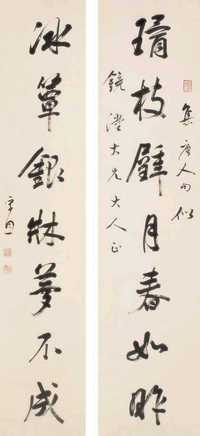 集唐人句似
璚枝璧月春如昨
鏡澄大兄大人正
冰簟銀牀夢不成